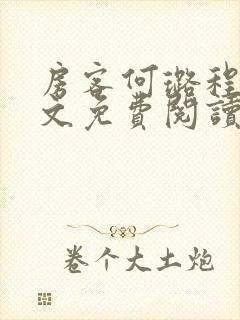 房客何璐程
文免費閱讀
卷个大土炮